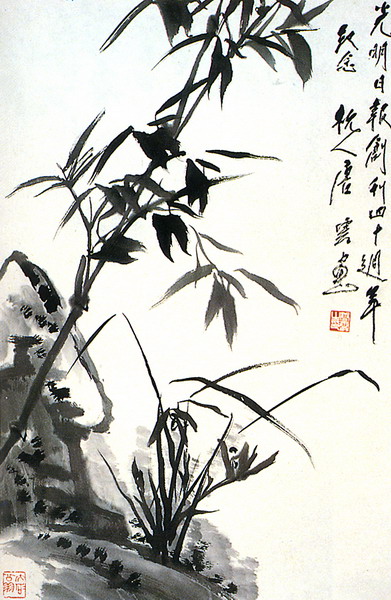 光明日報創刊四十週年
紀念 杭人唐雲畫